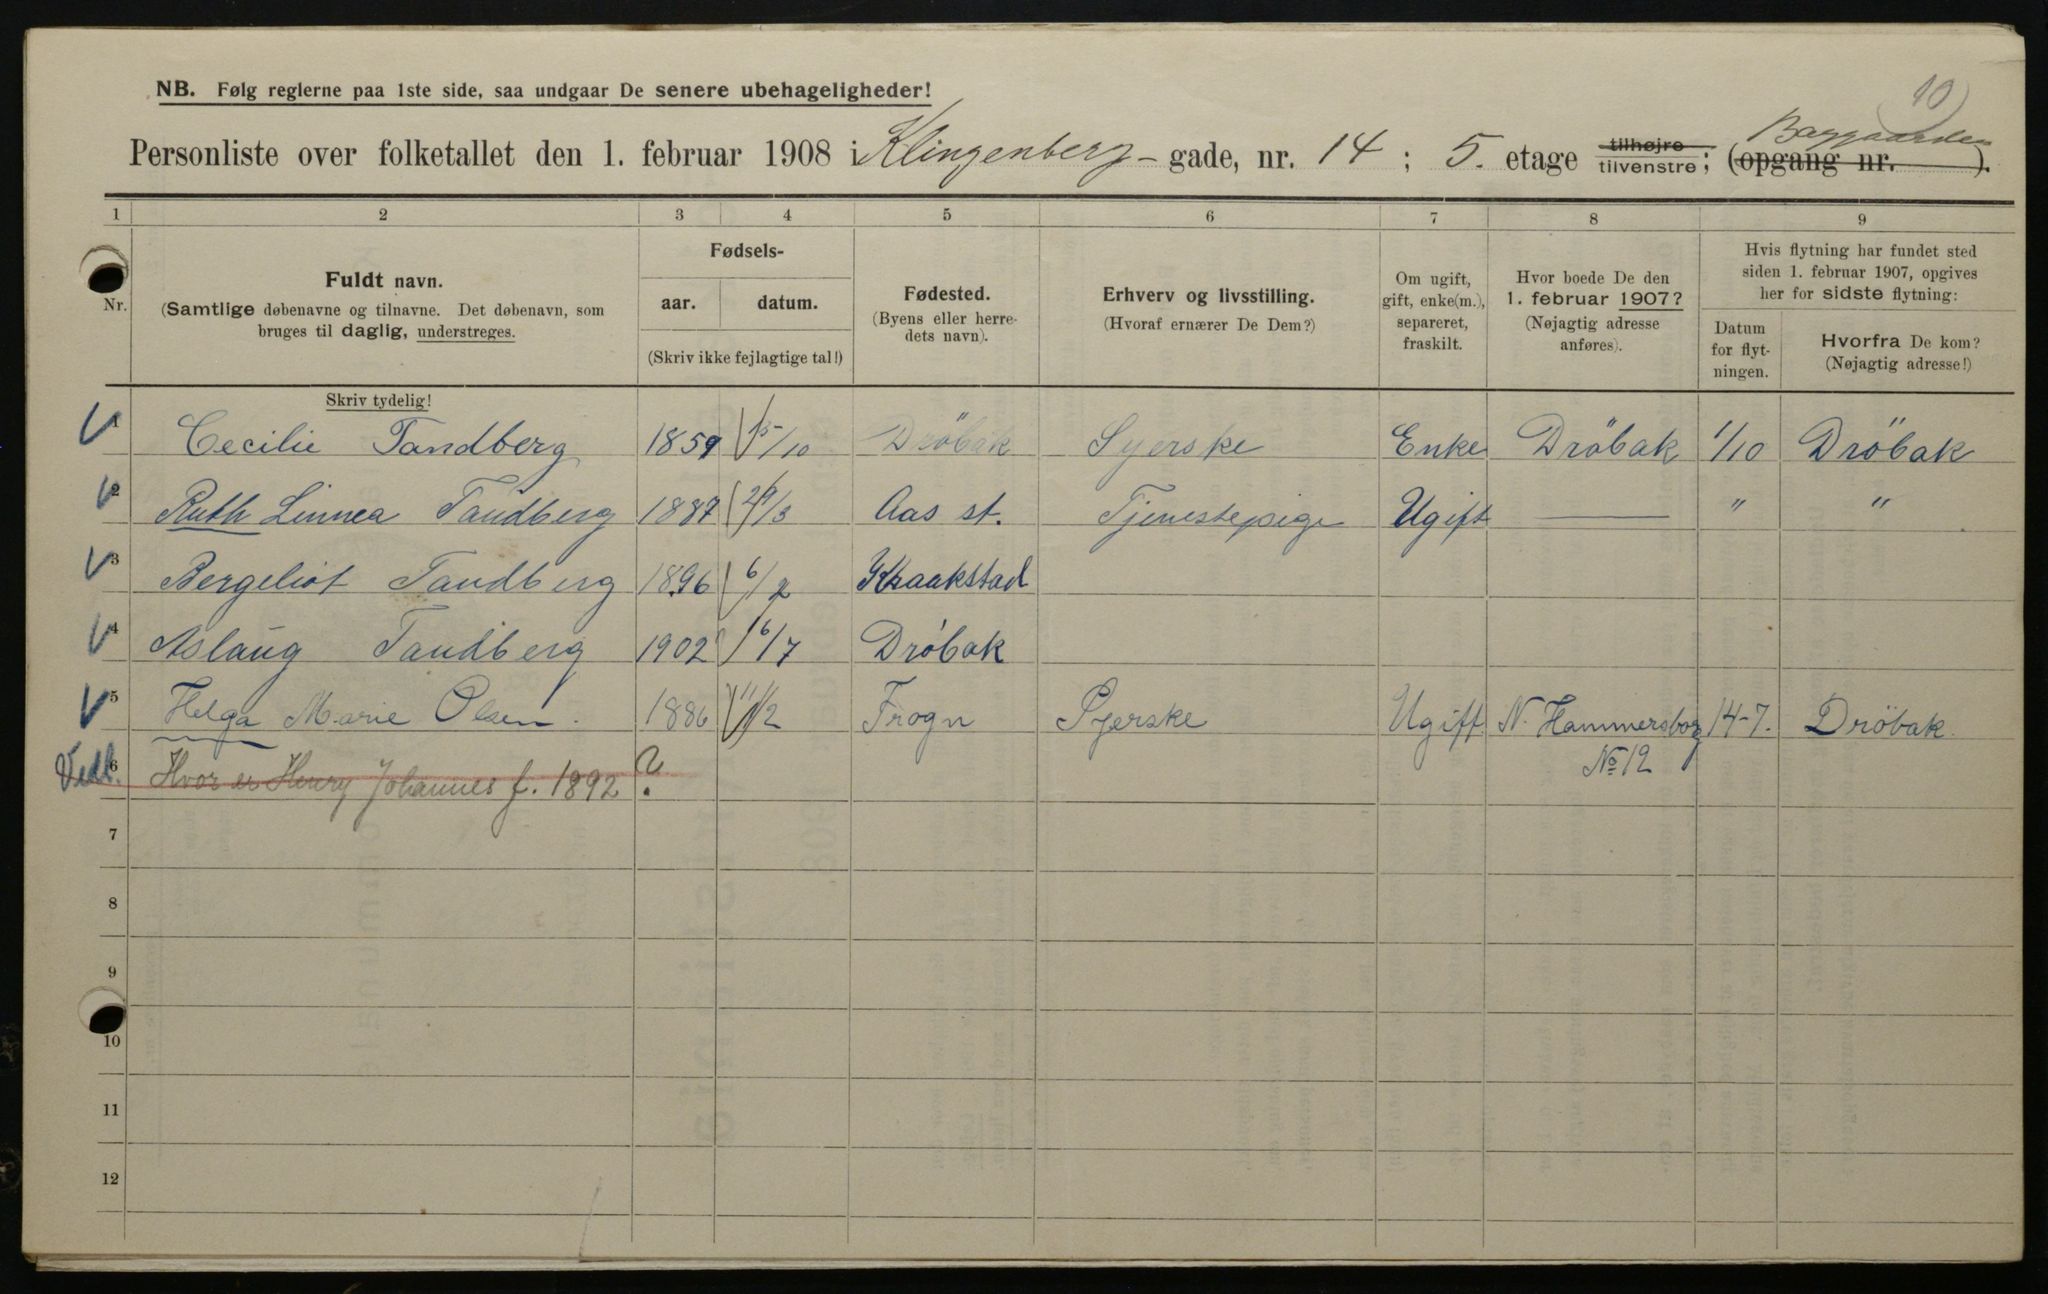 10
NB. Følg reglerne paa 1ste side, saa undgaar De senere ubehageligheder!
Personliste over folketallet den 1. februar 1908 i Klingenberg- gade, nr. 14 ; 5. etage tilhøjre tilvenstre; (opgang nr. ). Baggaarden
1 2 3 4 5 6 7 8 9
Nr.
Fuldt navn.
(Samtlige døbenavne og tilnavne. Det døbenavn, som
bruges til daglig, understreges.
Fødsels-
aar. datum.
(Skriv ikke fejlagtige tal!)
Fødested.
(Byens eller herre-
dets navn).
Erhverv og livsstilling.
(Hvoraf ernærer De Dem?)
Om ugift,
gift, enke(m.),
separeret,
fraskilt.
Hvor boede De den
1. februar 1907?
(Nøjagtig adresse
anføres).
Hvis flytning har fundet sted
siden 1. februar 1907, opgives
her for sidste flytning:
Datum
for flyt-
ningen.
Hvorfra De kom?
(Nøjagtig adresse!)
Skriv tydelig!
1 Cecilie Tandberg 1859 15/10 Dröbak Syerske Enke Dröbak 1/10 Dröbak
2 Ruth Linnea Tandberg 1887 29/3 Aas st. Tjenestepige Ugift — " "
3 Bergeliot Tandberg 1896 6/2 Kraakstad
4 Aslaug Tandberg 1902 16/7 Dröbak
5 Helga Marie Olsen. 1886 11/2 Frogn Syerske Ugift N. Hammersborg 14-7. Dröbak
No 12
6 Hvor er Henry Johannes f. 1892 ?
7
8
9
10
11
12